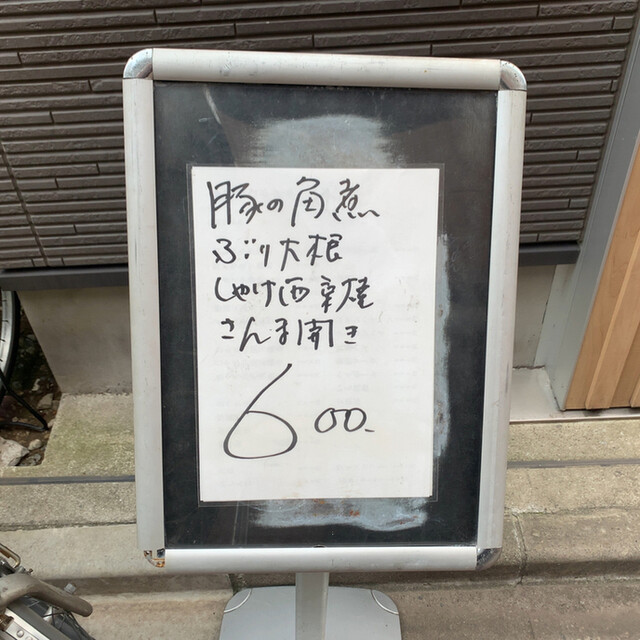 豚の角煮
ぶり大根
しゃけ西京焼
さんま開き
600.